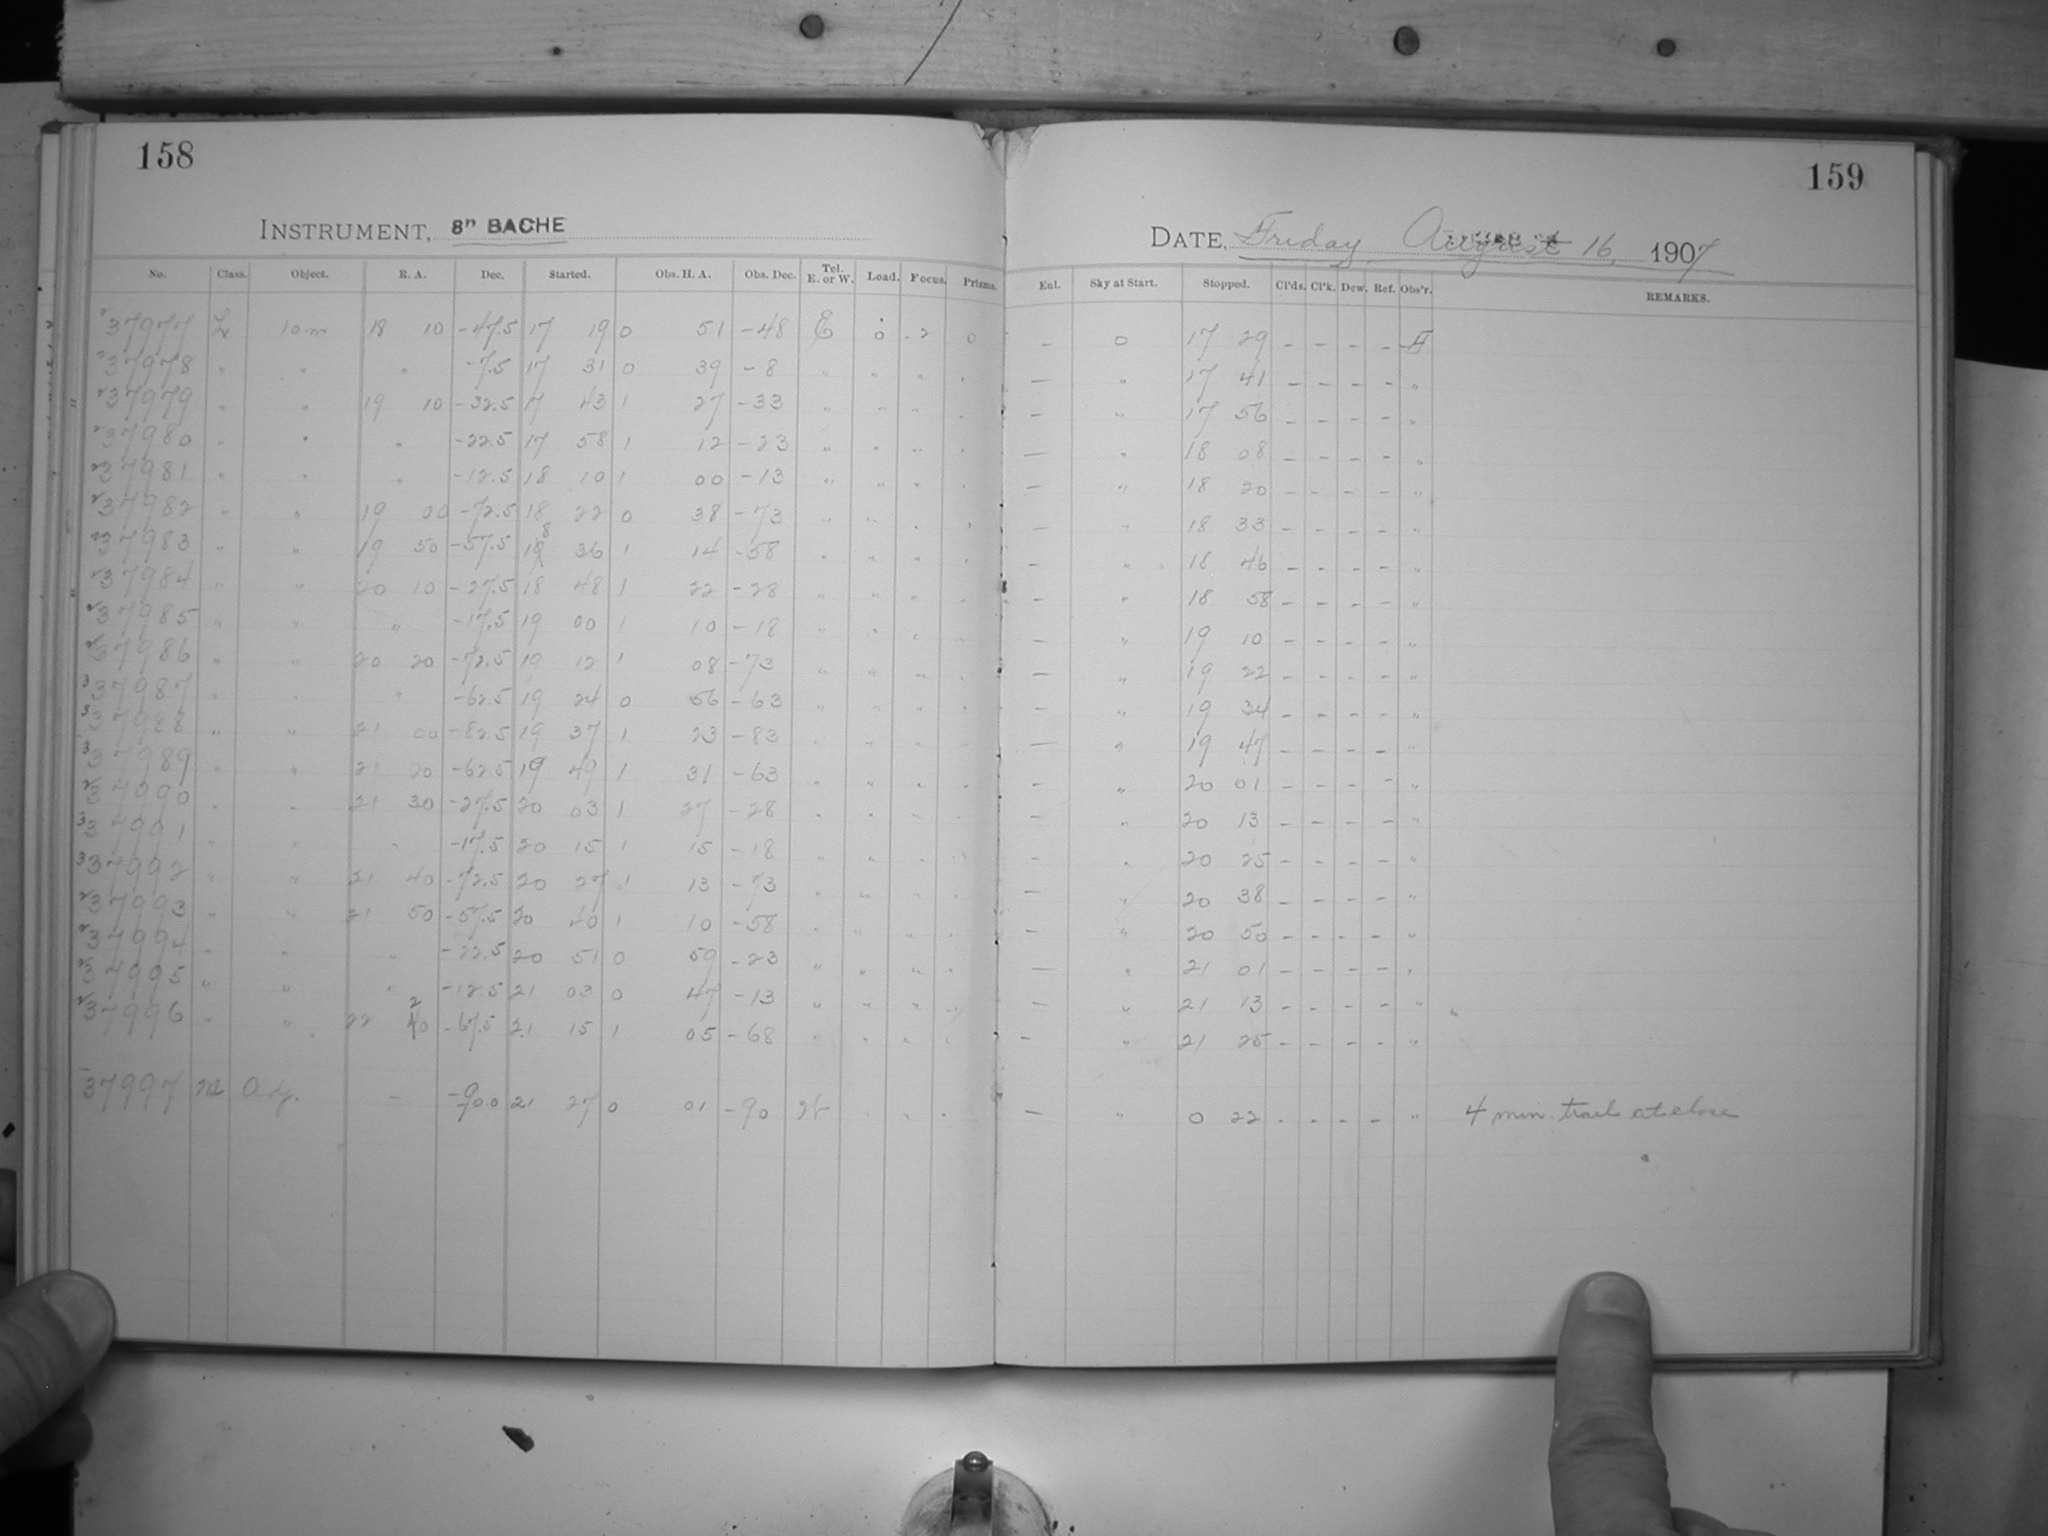 158
159
INSTRUMENT, 8" BACHE
DATE, Friday August 16, 1907
No. Class. Object. R. A. Dec. Started. Obs. H. A. Obs. Dec. Tel. E. or W. Load. Focus. Prisms. Eul. Sky at Start. Stopped. Cl'ds. Cl'k. Dew. Ref. Obs'r. REMARKS.
37977 L 10 m 18 10 -47.5 17 19 0 51 -48 E 0 -2 0 - 0 17 29 - - - -
37978 " " " -7.5 17 31 0 39 -8 " " " " - " 17 41 - - - - "
37979 " " 19 10 -32.5 17 43 1 27 -33 " " " " - " 17 56 - - - - "
37980 " " " -22.5 17 58 1 12 -23 " " " " - " 18 08 - - - - "
37981 " " " -12.5 18 10 1 00 -13 " " " " - " 18 20 - - - - "
37982 " " 19 00 -72.5 18 22 0 38 -73 " " " " - " 18 33 - - - - "
37983 " " 19 50 -57.5 18 36 1 14 -58 " " " " - " 18 46 - - - - "
37984 " " 20 10 -27.5 18 48 1 22 -28 " " " " - " 18 58 - - - - "
37985 " " " -17.5 19 00 1 10 -18 " " " " - " 19 10 - - - - "
37986 " " 20 20 -72.5 19 12 1 08 -73 " " " " - " 19 22 - - - - "
37987 " " " -62.5 19 24 0 56 -63 " " " " - " 19 34 - - - - "
37988 " " 21 00 -82.5 19 37 1 23 -83 " " " " - " 19 47 - - - - "
37989 " " 21 20 -62.5 19 49 1 31 -63 " " " " - " 20 01 - - - - "
37990 " " 21 30 -27.5 20 03 1 27 -28 " " " " - " 20 13 - - - - "
37991 " " " -17.5 20 15 1 15 -18 " " " " - " 20 25 - - - - "
37992 " " 21 40 -72.5 20 27 1 13 -73 " " " " - " 20 38 - - - - "
37993 " " 21 50 -57.5 20 40 1 10 -58 " " " " - " 20 50 - - - - "
37994 " " " -22.5 20 51 0 59 -23 " " " " - " 21 01 - - - - "
37995 " " " -12.5 21 03 0 47 -13 " " " " - " 21 13 - - - - "
37996 " " 22 20 -67.5 21 15 1 05 -68 " " " " - " 21 25 - - - - "
37997 M Adj. - -90.0 21 27 0 01 -90 W " " " - " 0 22 - - - - " 4 min. trail at close